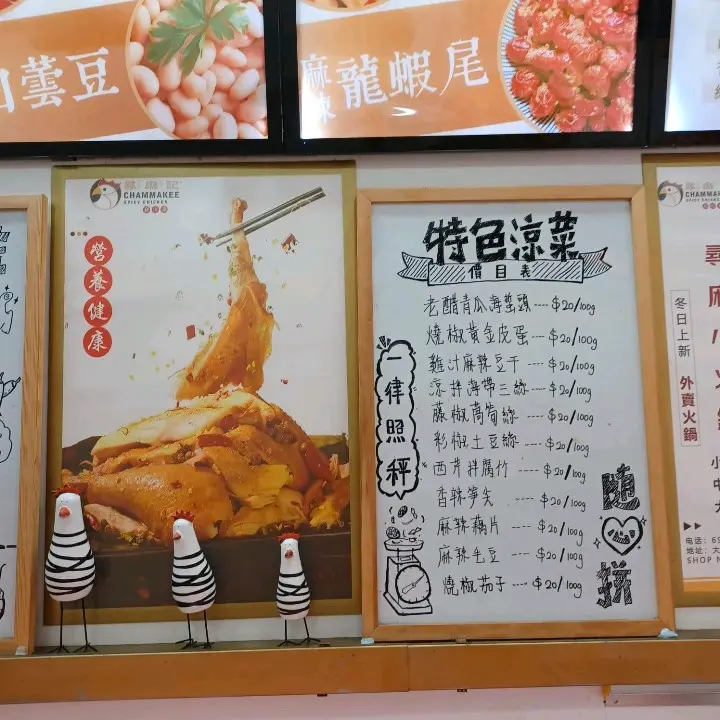 蕓豆
麻辣
龍蝦尾
CHAMMAKEE
SPICY CHICKEN
營養健康
特色涼菜
價目表
老醋青瓜海蜇頭---- $20/100g
燒椒黃金皮蛋---- $20/100g
雞汁麻辣豆干---- $20/100g
涼拌海帶三絲---- $20/100g
藤椒萵筍絲 ---- $20/100g
彩椒土豆絲 ---- $20/100g
西芹拌腐竹 ---- $20/100g
香辣筍尖 ---- $20/100g
麻辣藕片 ---- $20/100g
麻辣毛豆 ---- $20/100g
燒椒茄子 ---- $20/100g
一律照秤
隨
拼
CHAMMAKEE
SPICY CHICKEN
尋麻
冬日上新
外賣火鍋
小
中
大
电话: 69
地址: 大
SHOP N